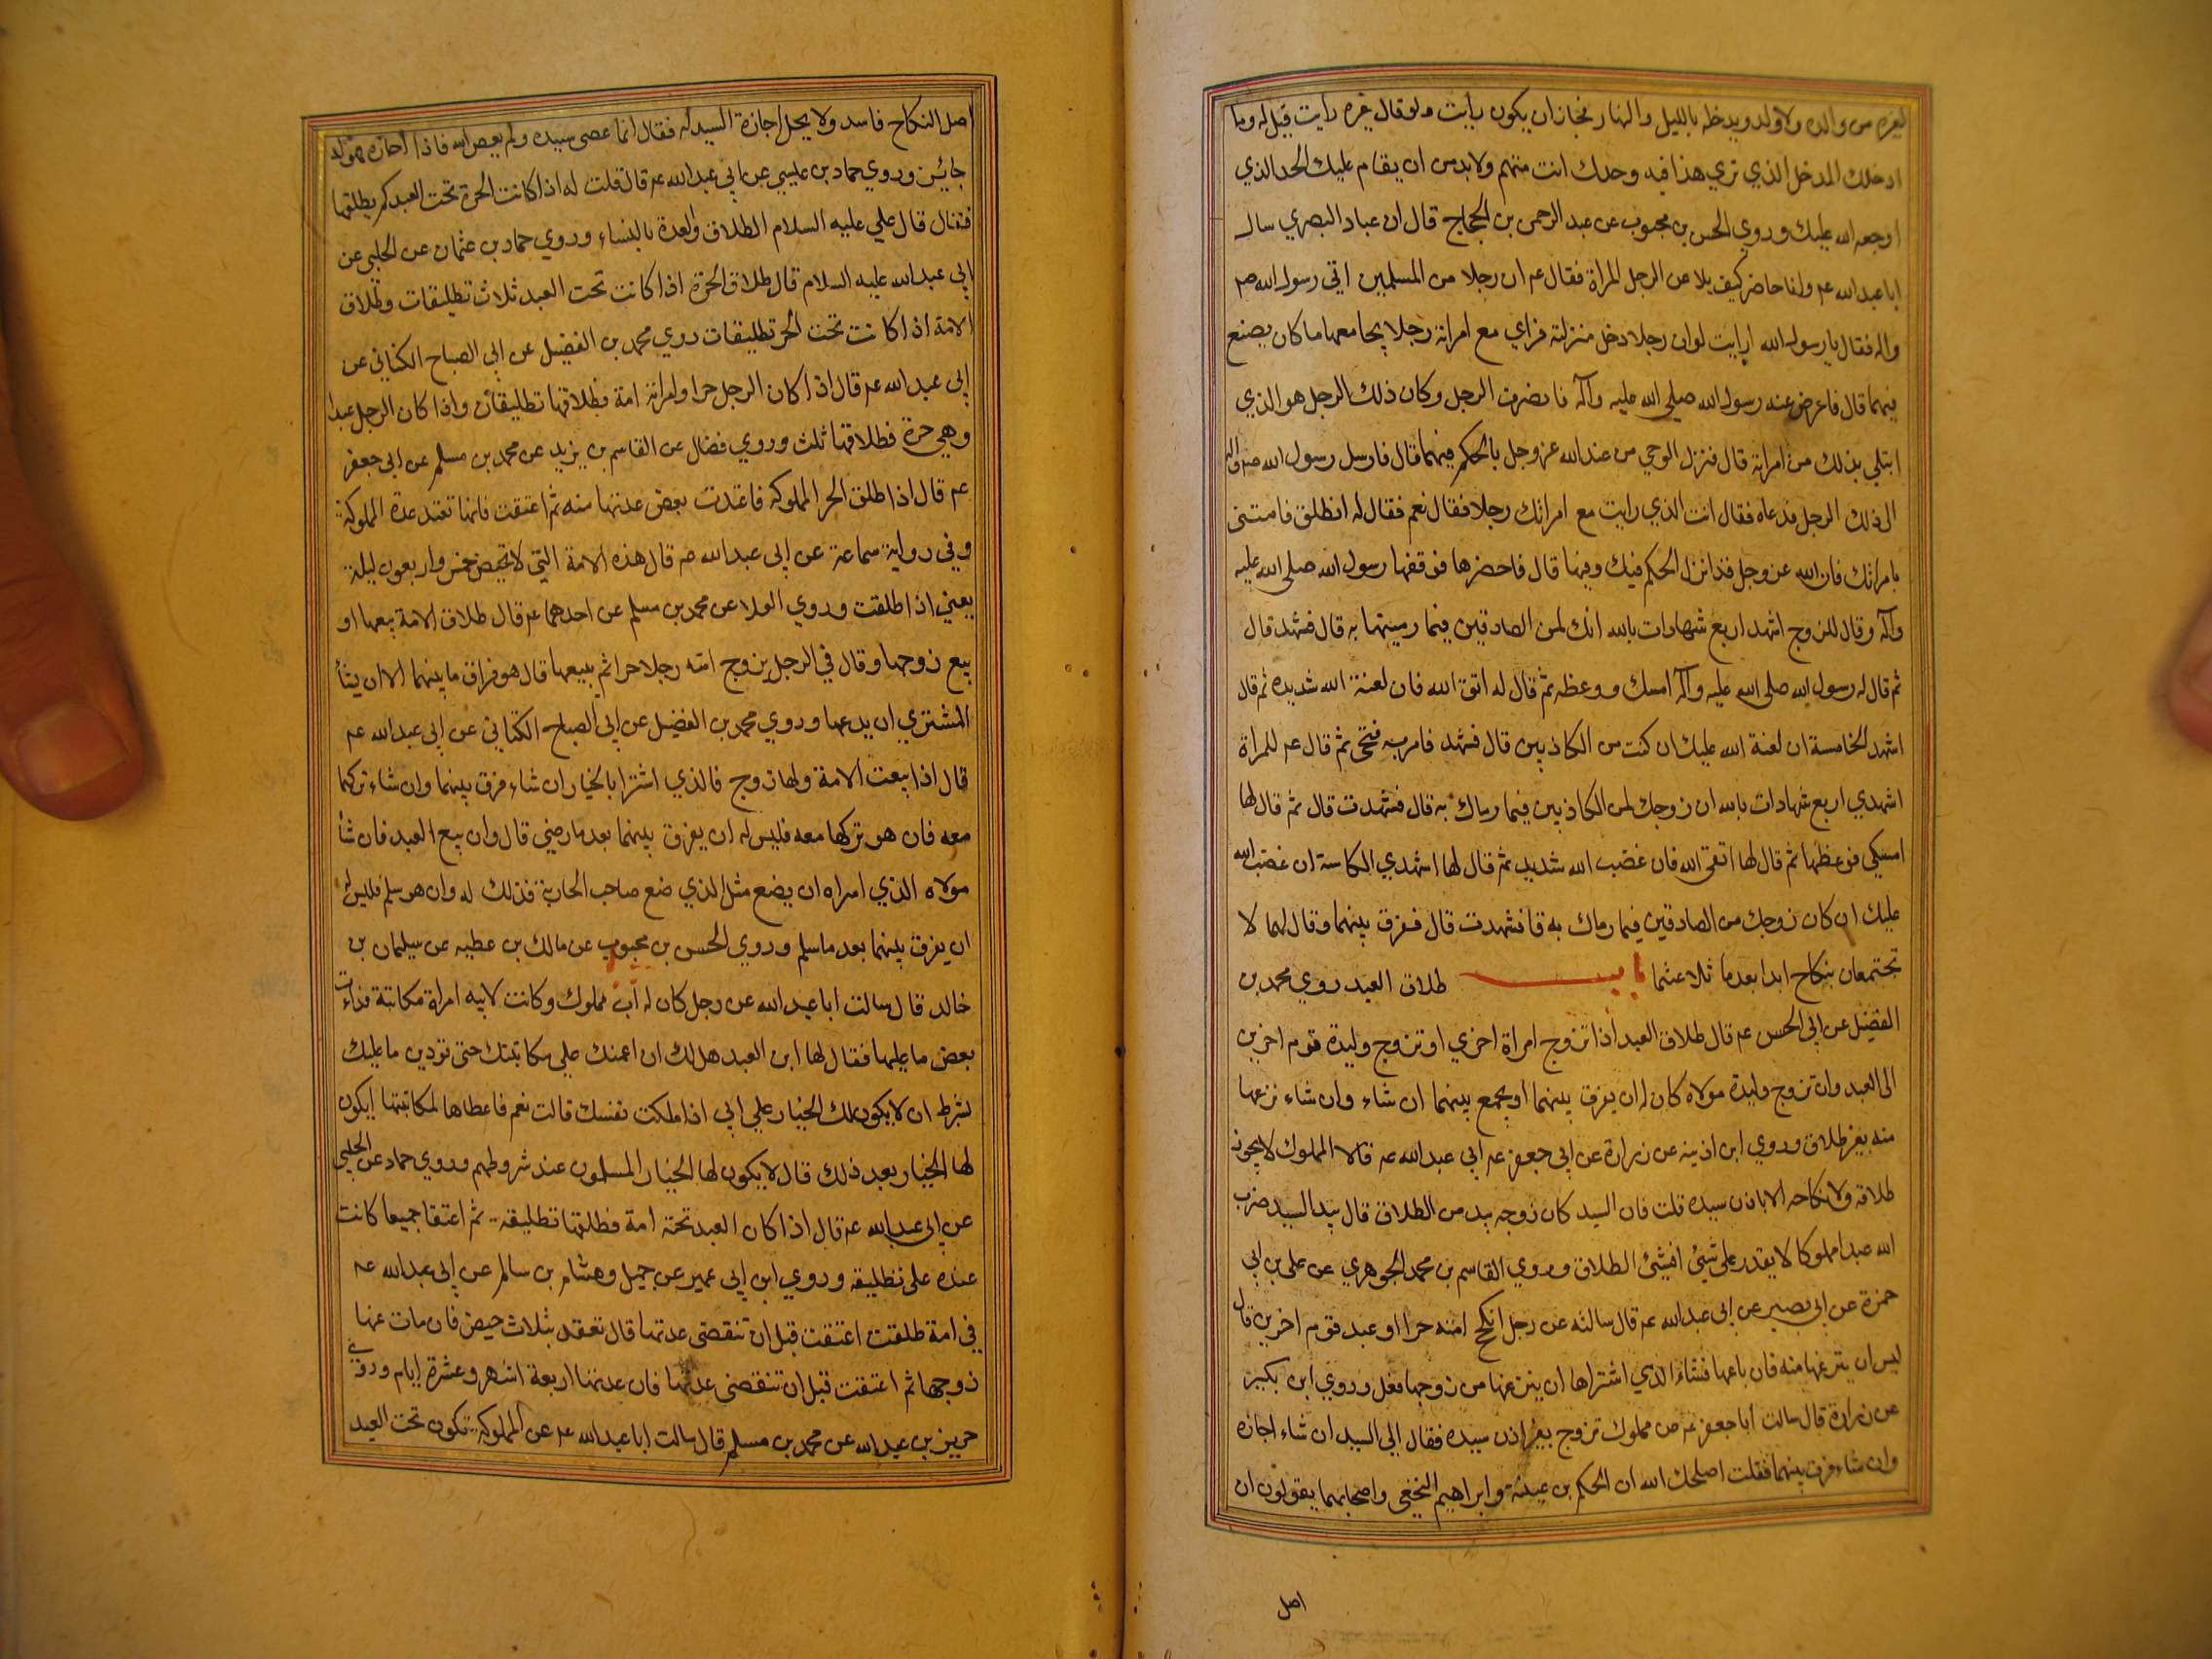 لغيره من والد ولا ولد ويدخله بالليل والنهار فجاز ان يكون رايت ولو قال غيره رايت قيل له وما
ادخلك المدخل الذي تري هذا فيه وحدك انت متهم ولابد من ان يقام عليك الحد الذي
اوجبه الله عليك وروي الحسن بن محبوب عن عبد الرحمن بن الحجاج قال ان عباد البصري سال
ابا عبد الله عم وانا حاضر كيف يلاعن الرجل المراة فقال عم ان رجلا من المسلمين اتي رسول الله صم
واله فقال يا رسول الله ارايت لو ان رجلا دخل منزله فراي مع امراته رجلا يجامعها ما كان يصنع
فيهما قال فاعرض عنه رسول الله صلي الله عليه وآله فانصرف الرجل وكان ذلك الرجل هو الذي
ابتلي بذلك من امراته قال فنزل الوحي من عند الله عز وجل بالحكم فيهما قال فارسل رسول الله صم واله
الي ذلك الرجل فدعاه فقال انت الذي رايت مع امراتك رجلا فقال نعم فقال له انطلق فاستني
بامراتك فان الله عز وجل قد انزل الحكم فيك وفيها قال فاحضرها فوقفها رسول الله صلي الله عليه
وآله وقال للزوج اشهد اربع شهادات بالله انك لمن الصادقين فيما رميتها به قال فشهد قال
ثم قال له رسول الله صلي الله عليه وآله امسك ووعظه ثم قال له اتق الله فان لعنة الله شديده ثم قال
اشهد الخامسة ان لعنة الله عليك ان كنت من الكاذبين قال فشهد فامر به فنحي ثم قال عم للمراة
اشهدي اربع شهادات بالله ان زوجك لمن الكاذبين فيما رماك به قال فشهدت قال ثم قال لها
امسكي فوعظها ثم قال لها اتقي الله فان غضب الله شديد ثم قال لها اشهدي الخامسة ان غضب الله
عليك ان كان زوجك من الصادقين فيما رماك به قا فشهدت قال ففرق بينهما وقال لهما لا
تجتمعان بنكاح ابدا بعدما تلاعنتما باب طلاق العبد روي محمد بن
الفضيل عن ابي الحسن عم قال طلاق العبد اذا تزوج امراة اخري او تزوج وليدة قوم اخرين
الي العبد وان تزوج وليدة مولاه كان له ان يفرق بينهما او يجمع بينهما ان شاء وان شاء نزعها
منه بغير طلاق وروي ابن اذينه عن زرارة عن ابي جعفر عم ابي عبد الله عم قالا المملوك لا يجوز
طلاقه ولا نكاحه الا باذن سيده قلت فان السيد كان زوجه بيد من الطلاق قال بيد السيد ضرب
الله عبدا مملوكا لا يقدر علي شيئ افشئ الطلاق وروي القاسم بن محمد الجوهري عن علي بن ابي
حمزة عن ابي بصير عن ابي عبد الله عم قال سالته عن رجل انكح امته حرا او عبد قوم اخرين قال
ليس ان ينزعها منه فان باعها فشاء الذي اشتراها ان ينزعها من زوجها فعل وروي ابن بكير
عن زرارة قال سالت ابا جعفر عم من مملوك تزوج بغير اذن سيده فقال الي السيد ان شاء اجازه
وان شاء فرق بينهما فقلت اصلحك الله ان الحكم بن عيينة وابراهيم النخعي واصحابهما يقولون ان
اصل
اصل النكاح فاسد ولا يحل اجازة السيد له فقال انما عصي سيده ولم يعص الله فاذا اجازه فهو له
جائز وروي حماد بن عيسي عن ابي عبد الله عم قال قلت له اذا كانت الحرة تحت العبد كم يطلقها
فقال قال علي عليه السلام الطلاق والعدة بالنساء وروي حماد بن عثمان عن الحلبي عن
ابي عبد الله عليه السلام قال طلاق الحرة اذا كانت تحت العبد ثلاث تطليقات وطلاق
الامة اذا كانت تحت الحر تطليقات روي محمد بن الفضيل عن ابي الصباح الكناني عن
ابي عبد الله عم قال اذا كان الرجل حرا وامراته امة فطلاقها تطليقان واذا كان الرجل عبدا
وهي حرة فطلاقها ثلث وروي فضال عن القاسم بن يزيد عن محمد بن مسلم عن ابي جعفر
عم قال اذا طلق الحر المملوكه فاعتدت بعض عدتها منه ثم اعتقت فانها تعتد عدة المملوكة
وفي رواية سماعة عن ابي عبد الله عم قال هذه الامة التي لا تحيض خمس واربعون ليلة
يعني اذا طلقت وروي العلا عن محمد بن مسلم عن احدهما عم قال طلاق الامة بيعها او
بيع زوجها وقال في الرجل يزوج امته رجلا حرا ثم يبيعها قال هو فراق ما بينهما الا ان يشأ
المشتري ان يدعها وروي محمد بن الفضيل عن ابي الصباح الكناني عن ابي عبد الله عم
قال اذا بيعت الامة ولها زوج فالذي اشترا بالخيار ان شاء فرق بينهما وان شاء تركها
معه فان هو تركها معه فليس له ان يفرق بينهما بعد ما رضي قال وان بيع العبد فان شأ
مولاه الذي امراه ان يضع مثل الذي ضع صاحب الجارية فذلك له وان هو سلم فليس له
ان يفرق بينهما بعد ما سلم وروي الحسن بن محبوب عن مالك بن عطيه عن سليمان بن
خالد قال سالت ابا عبد الله عن رجل كان له اب مملوك وكانت لابيه امراة مكاتبة فدادت
بعض ما عليها فقال لها ابن العبد هل لك ان اعينك علي مكاتبتك حتي تؤدين ما عليك
بشرط ان لا يكون لك الخيار علي ابي اذا ملكت نفسك قالت نعم فاعطاها لمكاتبتها ايكون
لها الخيار بعد ذلك قال لا يكون لها الخيار المسلمون عند شروطهم وروي حماد عن الحلبي
عن ابي عبد الله عم قال اذا كان العبد تحته امة فطلقها تطليقة ثم اعتقا جميعا كانت
عنده علي تطليقه وروي ابن ابي عمير عن جميل وهشام بن سالم عن ابي عبد الله عم
في امة طلقت اعتقت قبل ان تنقضي عدتها قال تعتد بثلاث حيض فان مات عنها
زوجها ثم اعتقت قبل ان تنقضي عدتها فان عدتها اربعة اشهر وعشرة ايام وروي
حريز بن عبد الله عن محمد بن مسلم قال سالت ابا عبد الله عم عن المملوكة تكون تحت العبد